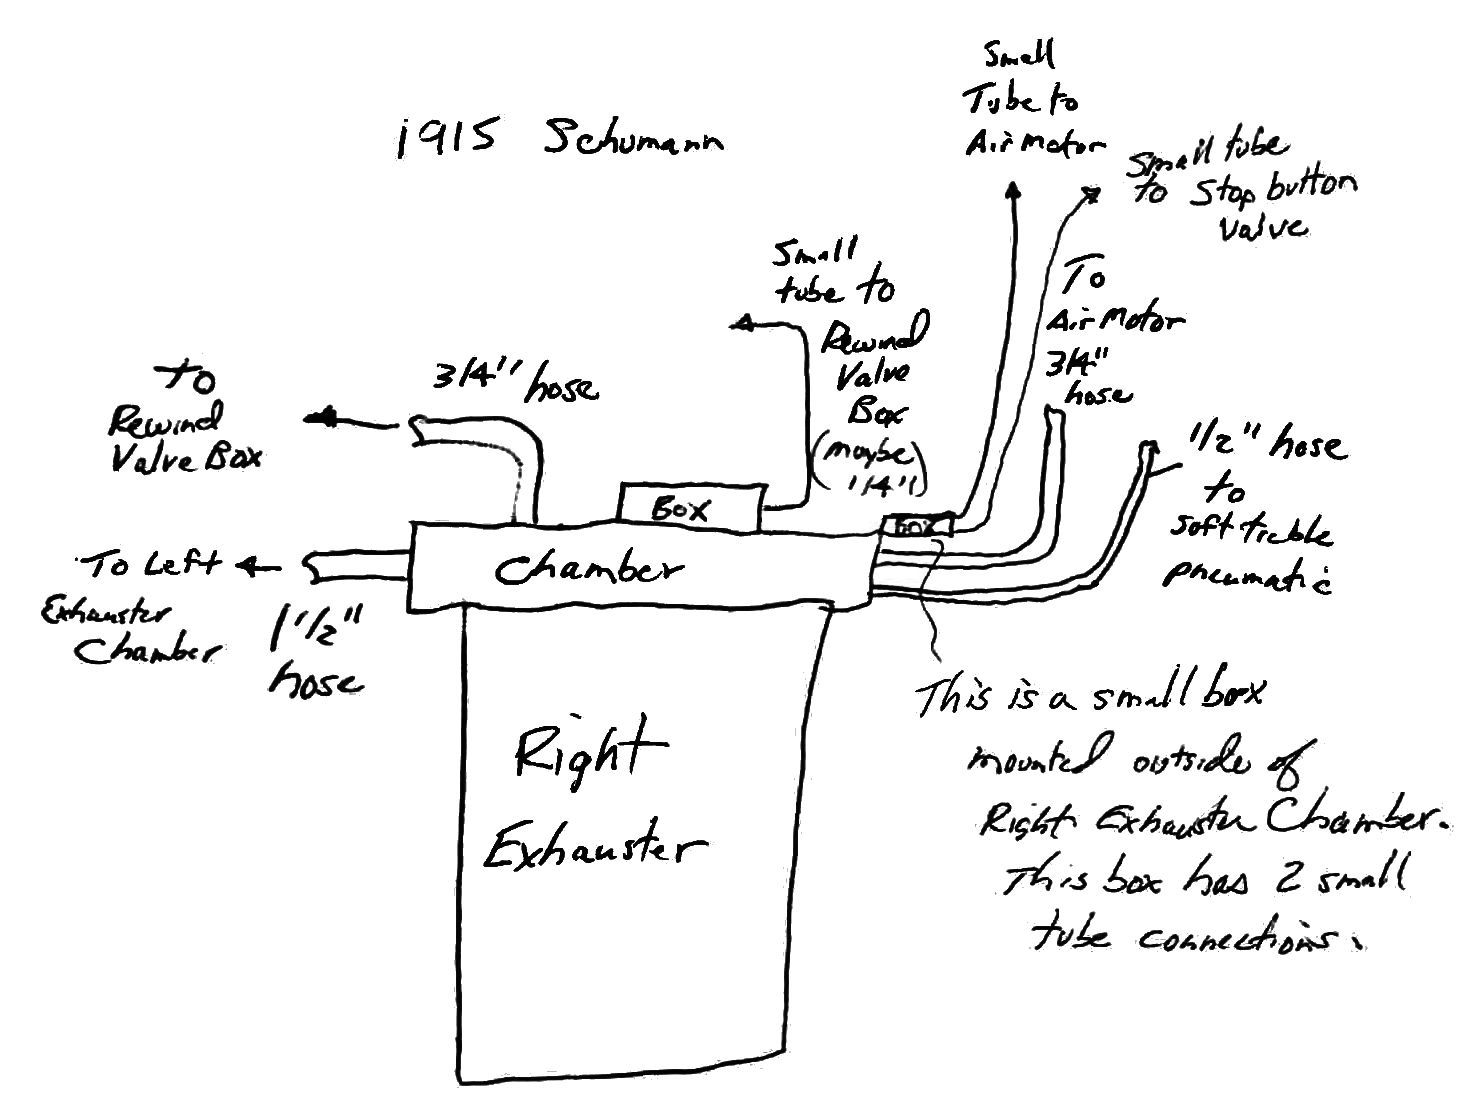 1915 Schumann
Small
Tube to
Air Motor
Small tube
to Stop button
Valve
Small
tube to
Rewind
Valve
Box
(maybe
1/4")
To
Air Motor
3/4"
hose
to
Rewind
Valve Box
3/4" hose
1/2" hose
to
soft treble
pneumatic
Box
Box
Chamber
To Left
Exhauster
Chamber
1 1/2"
hose
Right
Exhauster
This is a small box
mounted outside of
Right Exhauster Chamber.
This box has 2 small
tube connections.